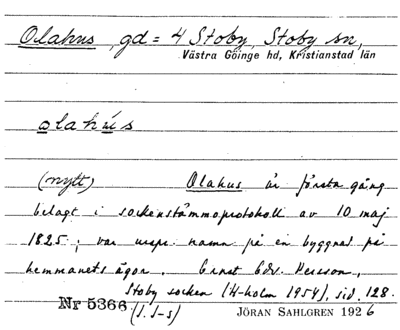 Olahus, gd = 4 Stoby, Stoby sn,
Västra Göinge hd, Kristianstad län
olahús
(nytt) Olahus är första gång
belagt i sockenstämmoprotokoll av 10 maj
1825; var urspr. namn på en byggnad på
hemmanets ägor. Ernst Edv. Persson,
Stoby socken (H-holm 1954), sid. 128.
Nr 5366 (1. J-s) JÖRAN SAHLGREN 1926